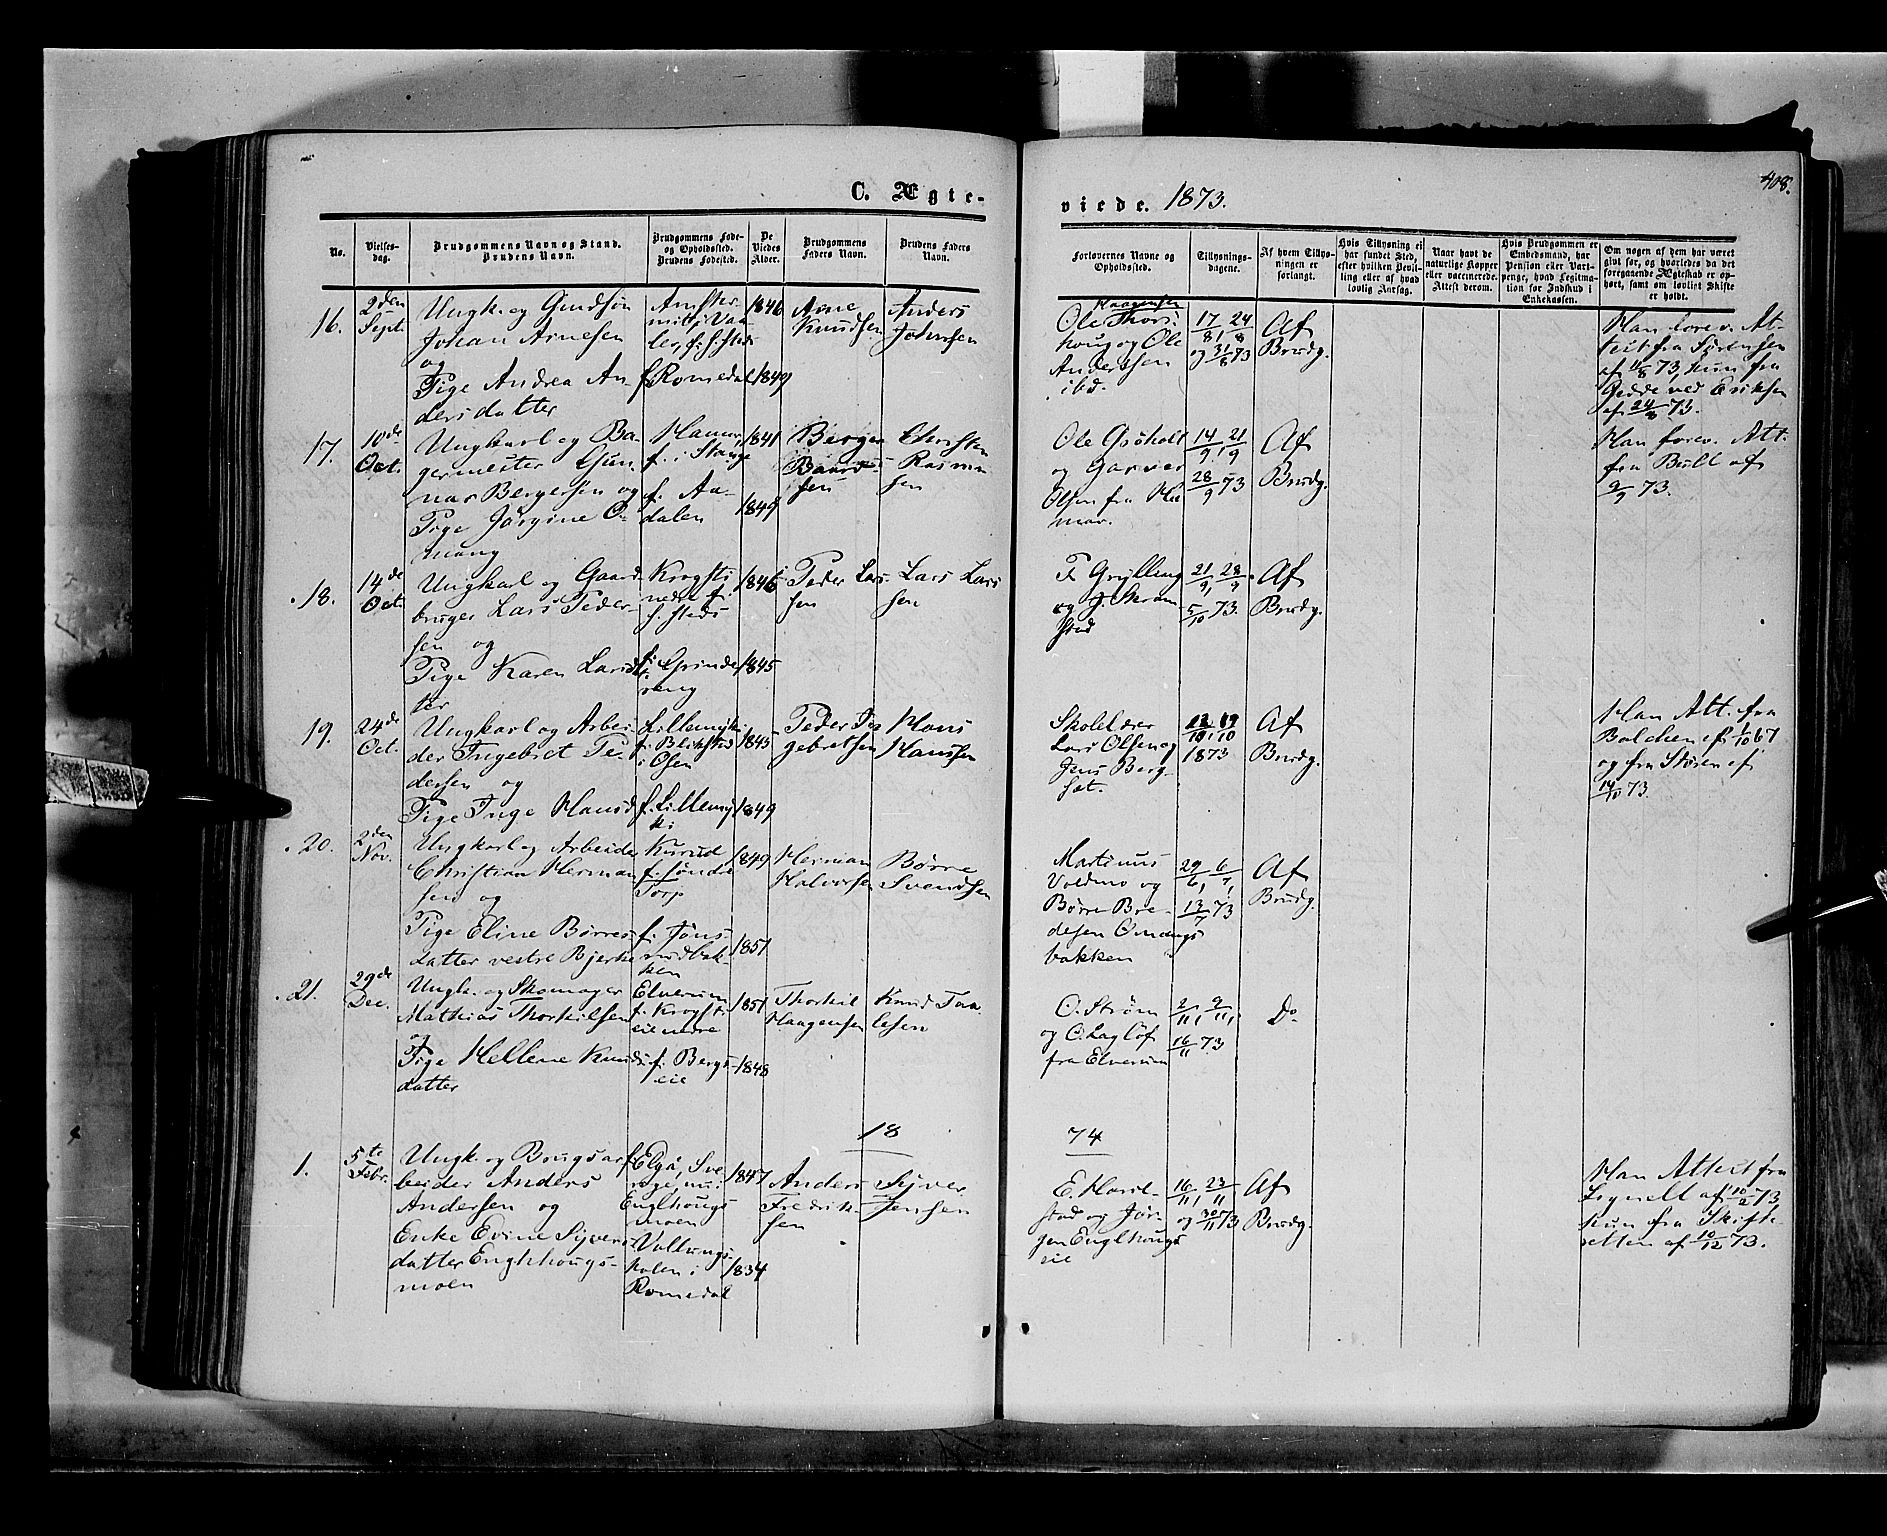 C. Ægte-
viede. 1873.
408.
No.
Vielses-
dag.
Brudgommens Navn og Stand.
Brudens Navn.
Brudgommens Føde-
og Opholdssted.
Brudens Fødested.
De
Viedes
Alder.
Brudgommens
Faders Navn.
Brudens Faders
Navn.
Forlovernes Navne og
Opholdssted.
Tillysnings-
dagene.
Af hvem Tillys-
ningen er
forlangt.
Hvis Tillysning ei
har fundet Sted,
efter hvilken Bevil-
ling eller af hvad
lovlig Aarsag.
Naar havt de
naturlige Kopper
eller vaccinerede.
Attest derom.
Hvis Brudgommen er
Embedsmand, har
Pension eller Vart-
penge, hvad Legitima-
tion for Indskud i
Enkekassen.
Om nogen af dem har været
gift før, og hvorledes da det
foregaaende Ægteskab er op-
hørt, samt om lovligt Skifte
er holdt.
16.
2den
Sept.
Ungk. og
Johan Arnesen
og
Pige Andrea An-
dersdatter
f. Romedal
1846
1849
Arne
Knudsen
Anders
Johnsen
Haagensen
Ole Thors-
houg og Ole
Anderssen
ibd.
17/8, 24/8
og 31/8 73
Af
Brudg.
Han forev. At-
test fra Sørensen
af 11/8 73, hun fra
Gedde ved Eriksen
af 24/8 73.
17.
10de
Oct.
Ungkarl og Ba-
germester Gun-
nar Bergersen og
Pige Jørgine O-
mang
Hamar,
f. i Stange
f. Aa-
dalen
1841
1849
Berger
Baard-
sen
Christen
Rasmu
sen
Ole Grøholt
og Gunner
Olsen fra Ha
mar.
14/9, 21/9
28/9 73
Af
Brudg.
Han forev. Att.
fra Bull af
9/9 73.
18.
14de
Oct.
Ungkarl og Gaard-
bruger Lars Peder-
sen og
Pige Karen Larsd
ter
Krogsti
nedre f.
s. steds
f. i Grinde
reng
1846
1845
Peder Lar-
sen
Lars Lars
sen
P. Grylling
og J. Skram
stad
21/9, 28/9
5/10 73.
Af
Brudg.
19.
24de
Oct.
Ungkarl og Arbei-
der Ingebrct Pe-
dersen og
Pige Inge Hansd
f. Blikstad
i Osen
f. Lillemyh
1845
1849
Peder In-
gebretsen
Hans
Hanssen
Skolelærer
Lars Olsen og
Jens Berg-
set.
12/10, 19/10
1873
Af
Brudg.
Han Att. fra
Balchen af 1/10 67
og fra Støren af
14/10 73.
20.
2den
Nov.
Ungkarl og Arbeider
Christian Herman
sen og
Pige Eline Børres-
datter vestre Bjerke
Kurud
f. søndre
Torp
f. Jøns-
rudbak-
ken
1849
1851
Herman
Halvorsen
Børre
Svendsen
Martinus
Voldmo og
Børre Bre-
desen Omangs
bakken
29/6, 6/7,
13/7 73
Af
Brudg.
21.
29de
Dec.
Ungk. og Skomager
Mathias Thorkilsen
og
Pige Hellene Knuds
datter
Elverum
f. Krogsti
eie nedre
f. Bergs-
eie
1851
1848
Thorkil
Haagensen
Knud Paa
lesen
O. Strøm
og C. Lagløf
fra Elverum
2/11, 9/11,
16/11 73
Do
18
74
1.
5te
Febr.
Ungk. og Brugsar
beider Anders
Andersen og
Enke Evine Syvers
datter Englhougs-
moen
f. Elgå, Sve-
rige, nu:
Englhougs
moen
Vallungs-
holen i
Romedal
1847
1834
Anders
Fredrik-
sen
Syver
Jensen
E. Haril-
stad og Jør-
gen Englhougs
eie
16/11, 23/11
og 30/11 73
Af
Brudg.
Han Attest fra
Lignell af 10/2 73
Hun fra Skifte
retten af 10/12 73.